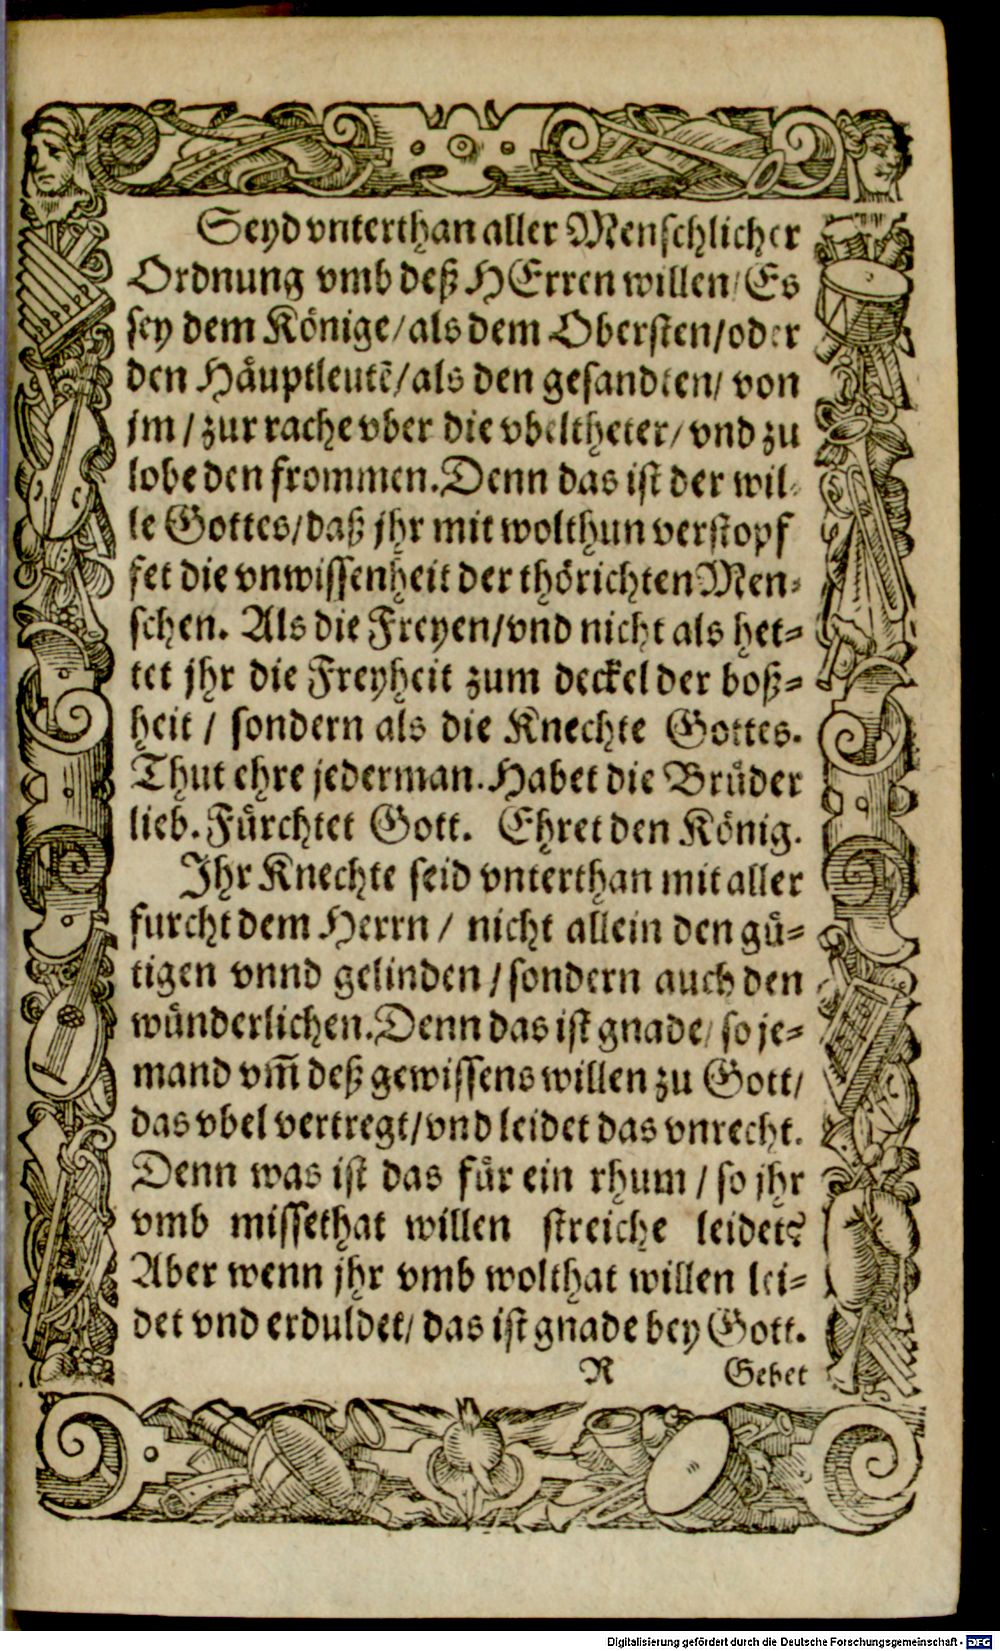 Seyd vnterthan aller Menschlicher
Ordnung vmb deß HErren willen/ Es
sey dem Könige/ als dem Obersten/ oder
den Häuptleutẽ/ als den gesandten/ von
jm / zur rache vber die vbeltheter/ vnd zu
lobe den frommen. Denn das ist der wil-
le Gottes/ daß jhr mit wolthun verstopf
fet die vnwissenheit der thörichten Men-
schen. Als die Freyen/ vnd nicht als het-
tet jhr die Freyheit zum deckel der boß-
heit / sondern als die Knechte Gottes.
Thut ehre jederman. Habet die Brüder
lieb. Fürchtet Gott. Ehret den König.
Ihr Knechte seid vnterthan mit aller
furcht dem Herrn / nicht allein den gü-
tigen vnnd gelinden / sondern auch den
wünderlichen. Denn das ist gnade/ so je-
mand vm̃ deß gewissens willen zu Gott/
das vbel vertregt/ vnd leidet das vnrecht.
Denn was ist das für ein rhum / so jhr
vmb missethat willen streiche leidet?
Aber wenn jhr vmb wolthat willen lei-
det vnd erduldet/ das ist gnade bey Gott.
R Gebet
Digitalisierung gefördert durch die Deutsche Forschungsgemeinschaft - DFG